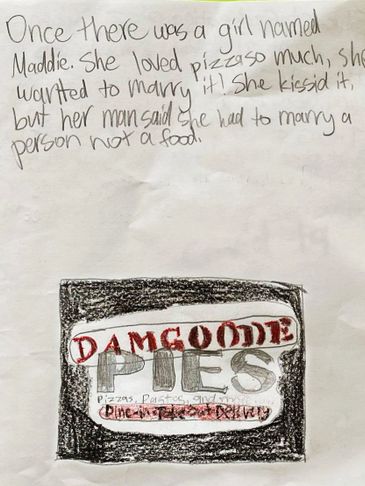 Once there was a girl named
Maddie. She loved pizzaso much, she
wantted to marry it! She kissid it,
but her man said she had to marry a
person not a food.
DAMGOODE
PIES
Pizzas, Pastas, and more
Dine-in Take Out Delivery